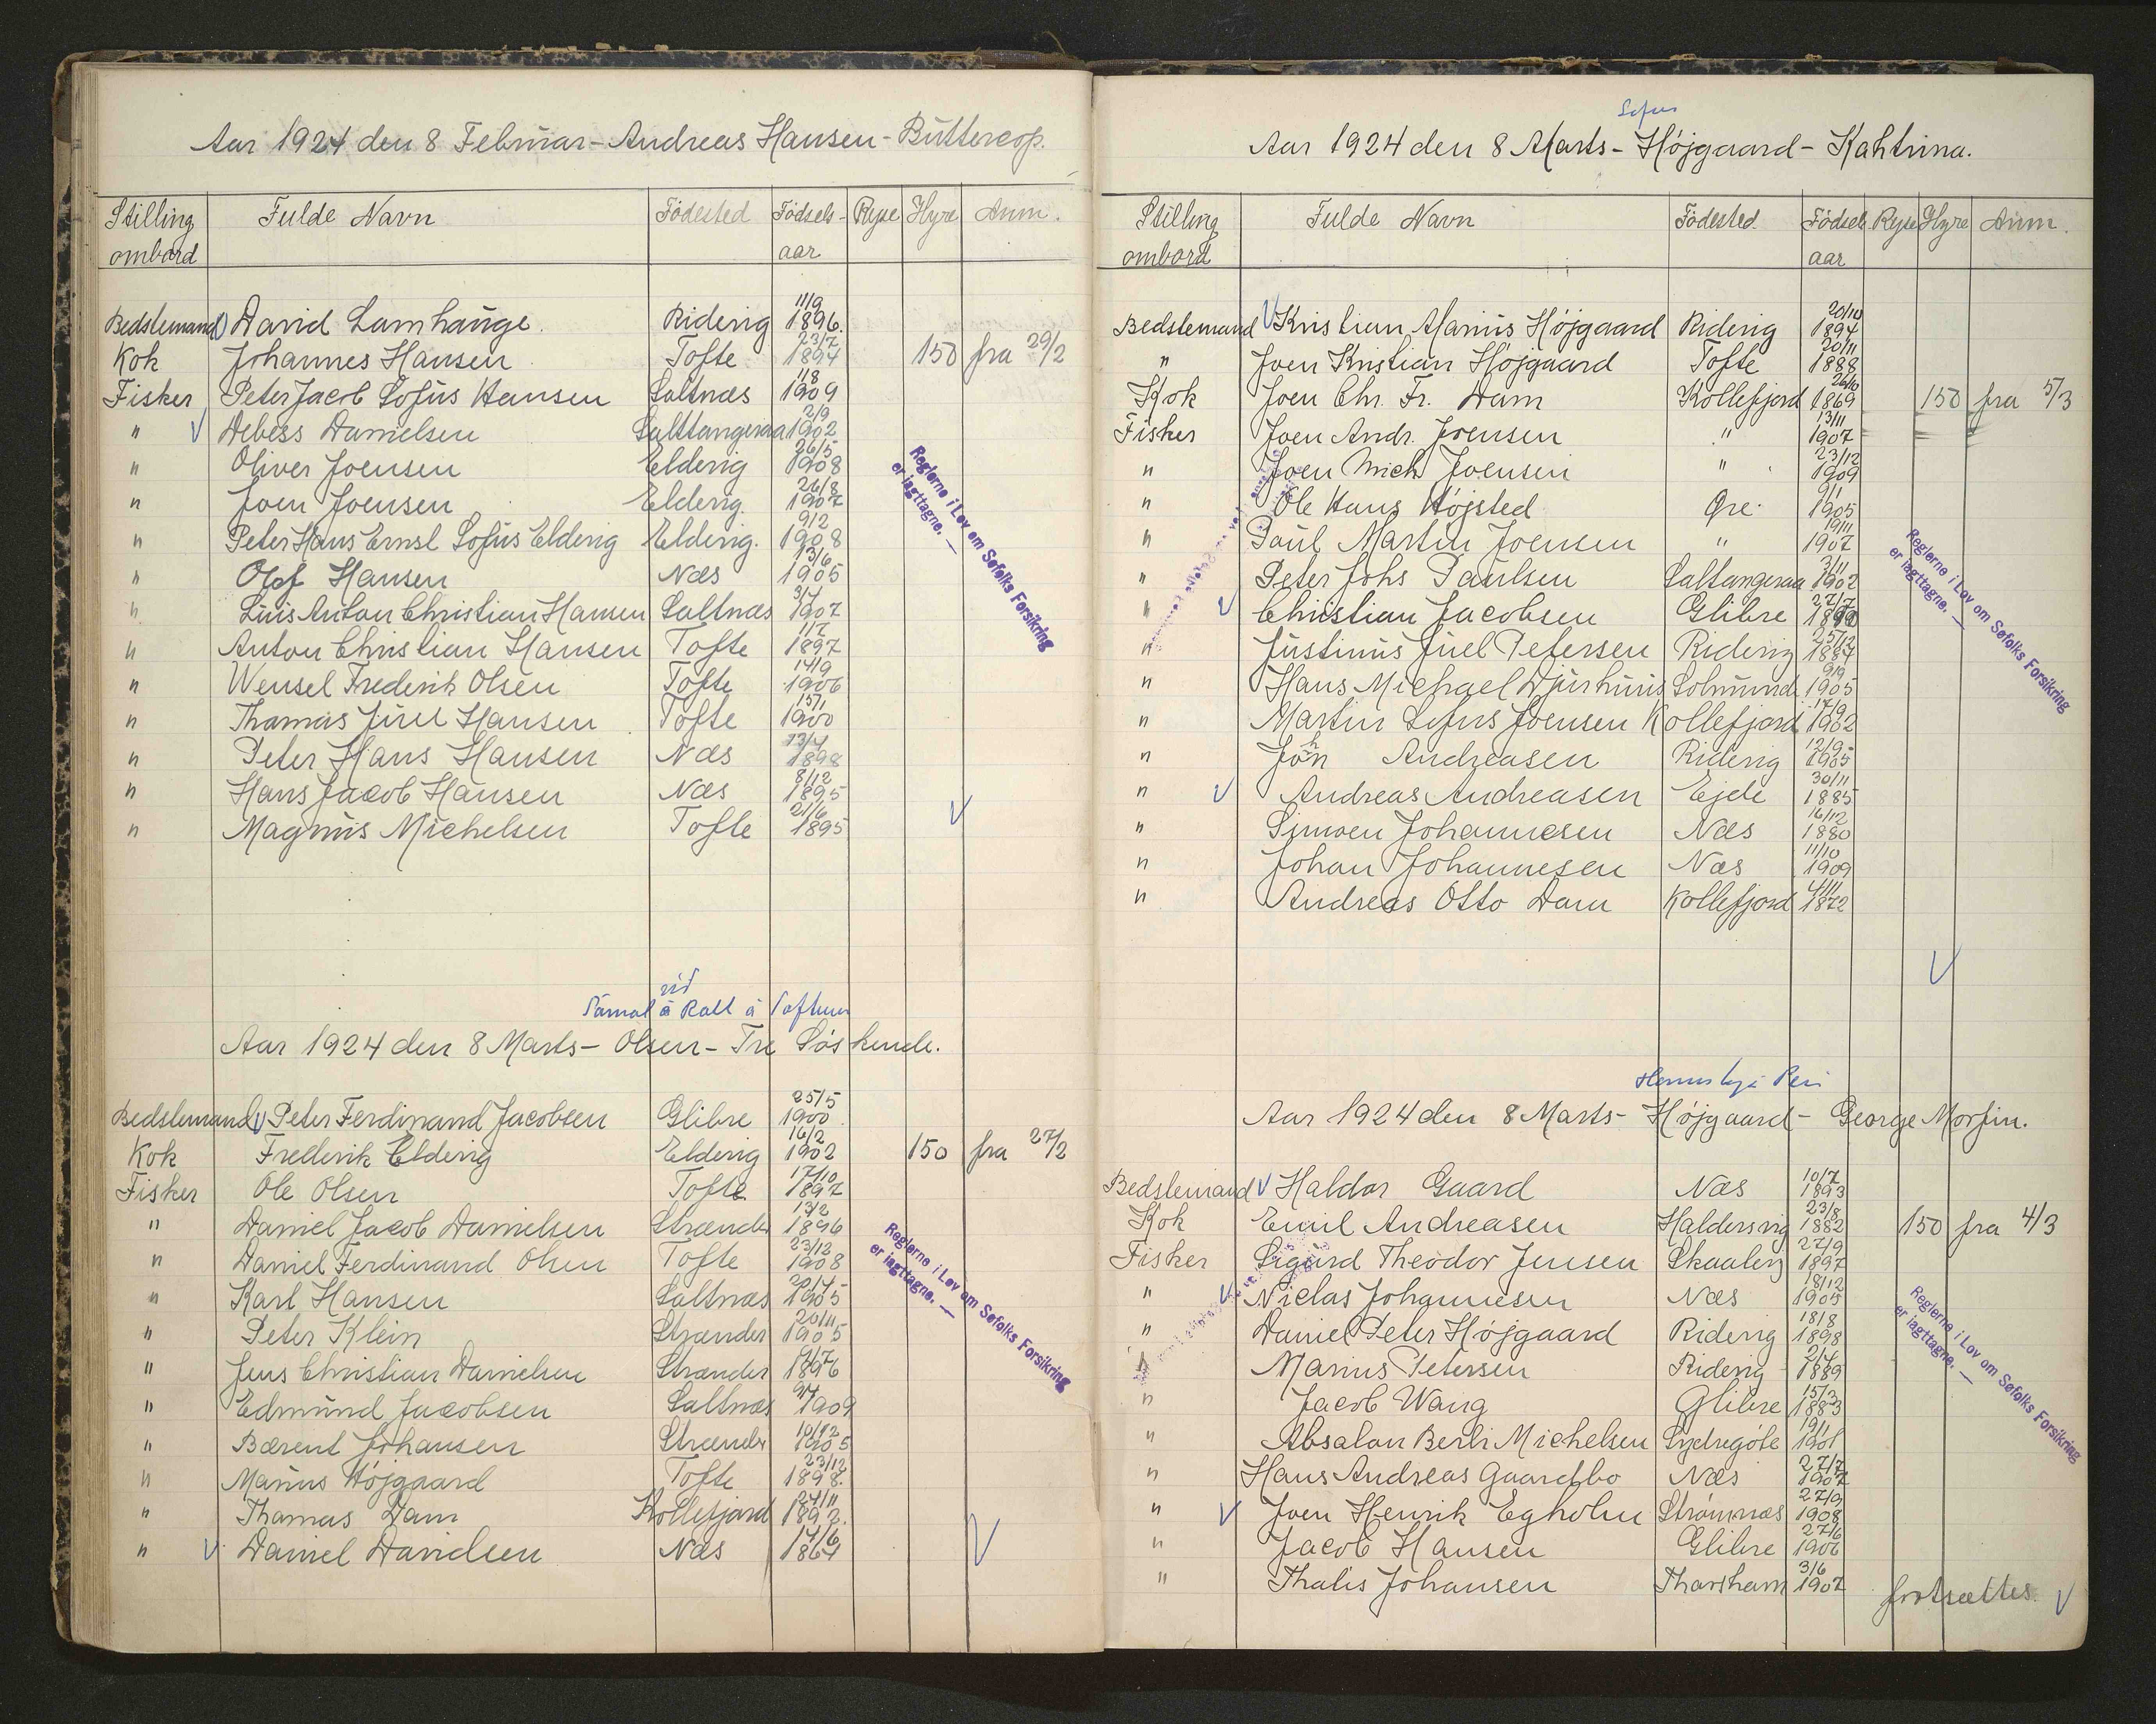 Aar 1924 den 8 Februar - Andreas Hansen - Buttercop.
Stilling ombord Fulde Navn Födested Födsels-aar Rejse Hyre Anm.
Bedstemand David Lamhauge. Riderig 11/9 1896.
Kok Johannes Hansen Tofte 23/7 1894 150 fra 29/2
Fisker Peter Jacob Sofus Hansen Saltnæs 1/8 1909
" V Debess Danielsen Salttangeraa 2/9 1902
" Oliver Joensen Elderig 26/5 1908
" Joen Joensen Elderig. 26/8 1907
" Peter Hans Ernst Sofus Elderig Elderig. 9/2 1908
" Olof Hansen Næs 13/6 1905
" Luis Anton Christian Hansen Saltnæs 3/4 1907
" Anton Christian Hansen Tofte 1/7 1897
" Wensel Frederik Olsen Tofte 14/9 1906
" Thomas Juel Hansen Tofte 15/1 1900
" Peter Hans Hansen Næs 13/4 1898
" Hans Jacob Hansen Næs 8/12 1895
" Magnus Michelsen Tofte 21/6 1895 V
Reglerne i Lov om Søfolks Forsikring
er iagttagne. —
á Toftum
Aar 1924 den 8 Marts - Olsen - Tre Söskende.
Bedstemand V Peter Ferdinand Jacobsen Glibre 25/5 1900
Kok Frederik Elderig Elderig 16/2 1902 150 fra 27/2
Fisker Ole Olsen Tofte 17/10 1897
" Daniel Jacob Danielsen Strænder 13/2 1896
" Daniel Ferdinand Olsen Tofte 23/12 1908
" Karl Hansen Saltnæs 20/4 1905
" Peter Klein Strænder 20/11 1905
" Jens Christian Danielsen Strænder 1896
" Edmund Jacobsen Saltnæs 1909
" Bærent Johansen Strænder 10/12 1905
" Marius Højgaard Tofte 23/12 1898.
" Thomas Dam Kollefjord 24/11 1892.
" V Daniel Davidsen Næs 17/6 1864 V
Reglerne i Lov om Søfolks Forsikring
er iagttagne. —
Sofus
Aar 1924 den 8 Marts - Højgaard - Kahtrina.
Stilling ombord Fulde Navn Födested. Födsels aar Rejse Hyre Anm.
Bedstemand V Kristian Marius Højgaard Riderig 20/10 1894
" Joen Kristian Højgaard Tofte 20/11 1888
Kok Joen Chr. Fr. Dam Kollefjord 26/10 1869 150 fra 5/3
Fisker Joen Andr. Joensen " 13/11 1907
" Joen Mich Joensen " 23/12 1909
" Ole Hans Højsted Qre. 9/1 1905
" Paul Martin Joensen " 19/11 1907
" Peter Johs Paulsen Saltangeraa 3/11 1902
" V Christian Jacobsen Glibre 27/7
" Justinus Juel Petersen Riderig 25/12 1887
" Hans Michael Djurhuus Solmunde 9/9 1905
" Martin Sofus Joensen Kollefjord 17/9 1902
" Jón Andreasen Riderig 12/9 1905
" V Andreas Andreasen Ejde 30/11 1885
" Simoen Johannesen Næs 16/12 1880
" Johan Johannesen Næs 11/10 1909
" Andreas Otto Dam Kollefjord 4/11 1872
V
Reglerne i Lov om Søfolks Forsikring
er iagttagne. —
Aar 1924 den 8 Marts - Højgaard - George Morfin.
Bedstemand V Haldor Gaard Næs 10/7 1893
Kok Emil Andreasen Haldersvig 23/8 1882 150 fra 4/3
Fisker Sigurd Theodor Jensen Skaalerj 27/9 1897
" V Niclas Johannesen Næs 18/12 1905
" Daniel Peter Højgaard Riderig 18/8 1898
" Marius Petersen Riderig 2/4 1889
" Jacob Wang Glibre 15/3 1883
" Absalon Berli Michelsen Sydregöte 19/1 1901
" Hans Andreas Gaardbo Næs 27/7 1907
" V Joen Henrik Egholm Strömnæs 27/9 1908
" Jacob Hansen Glibre 27/6 1906
" Thalis Johansen Thorshavn 3/6 1907
frotsættes. V
Reglerne i Lov om Søfolks Forsikring
er iagttagne. —